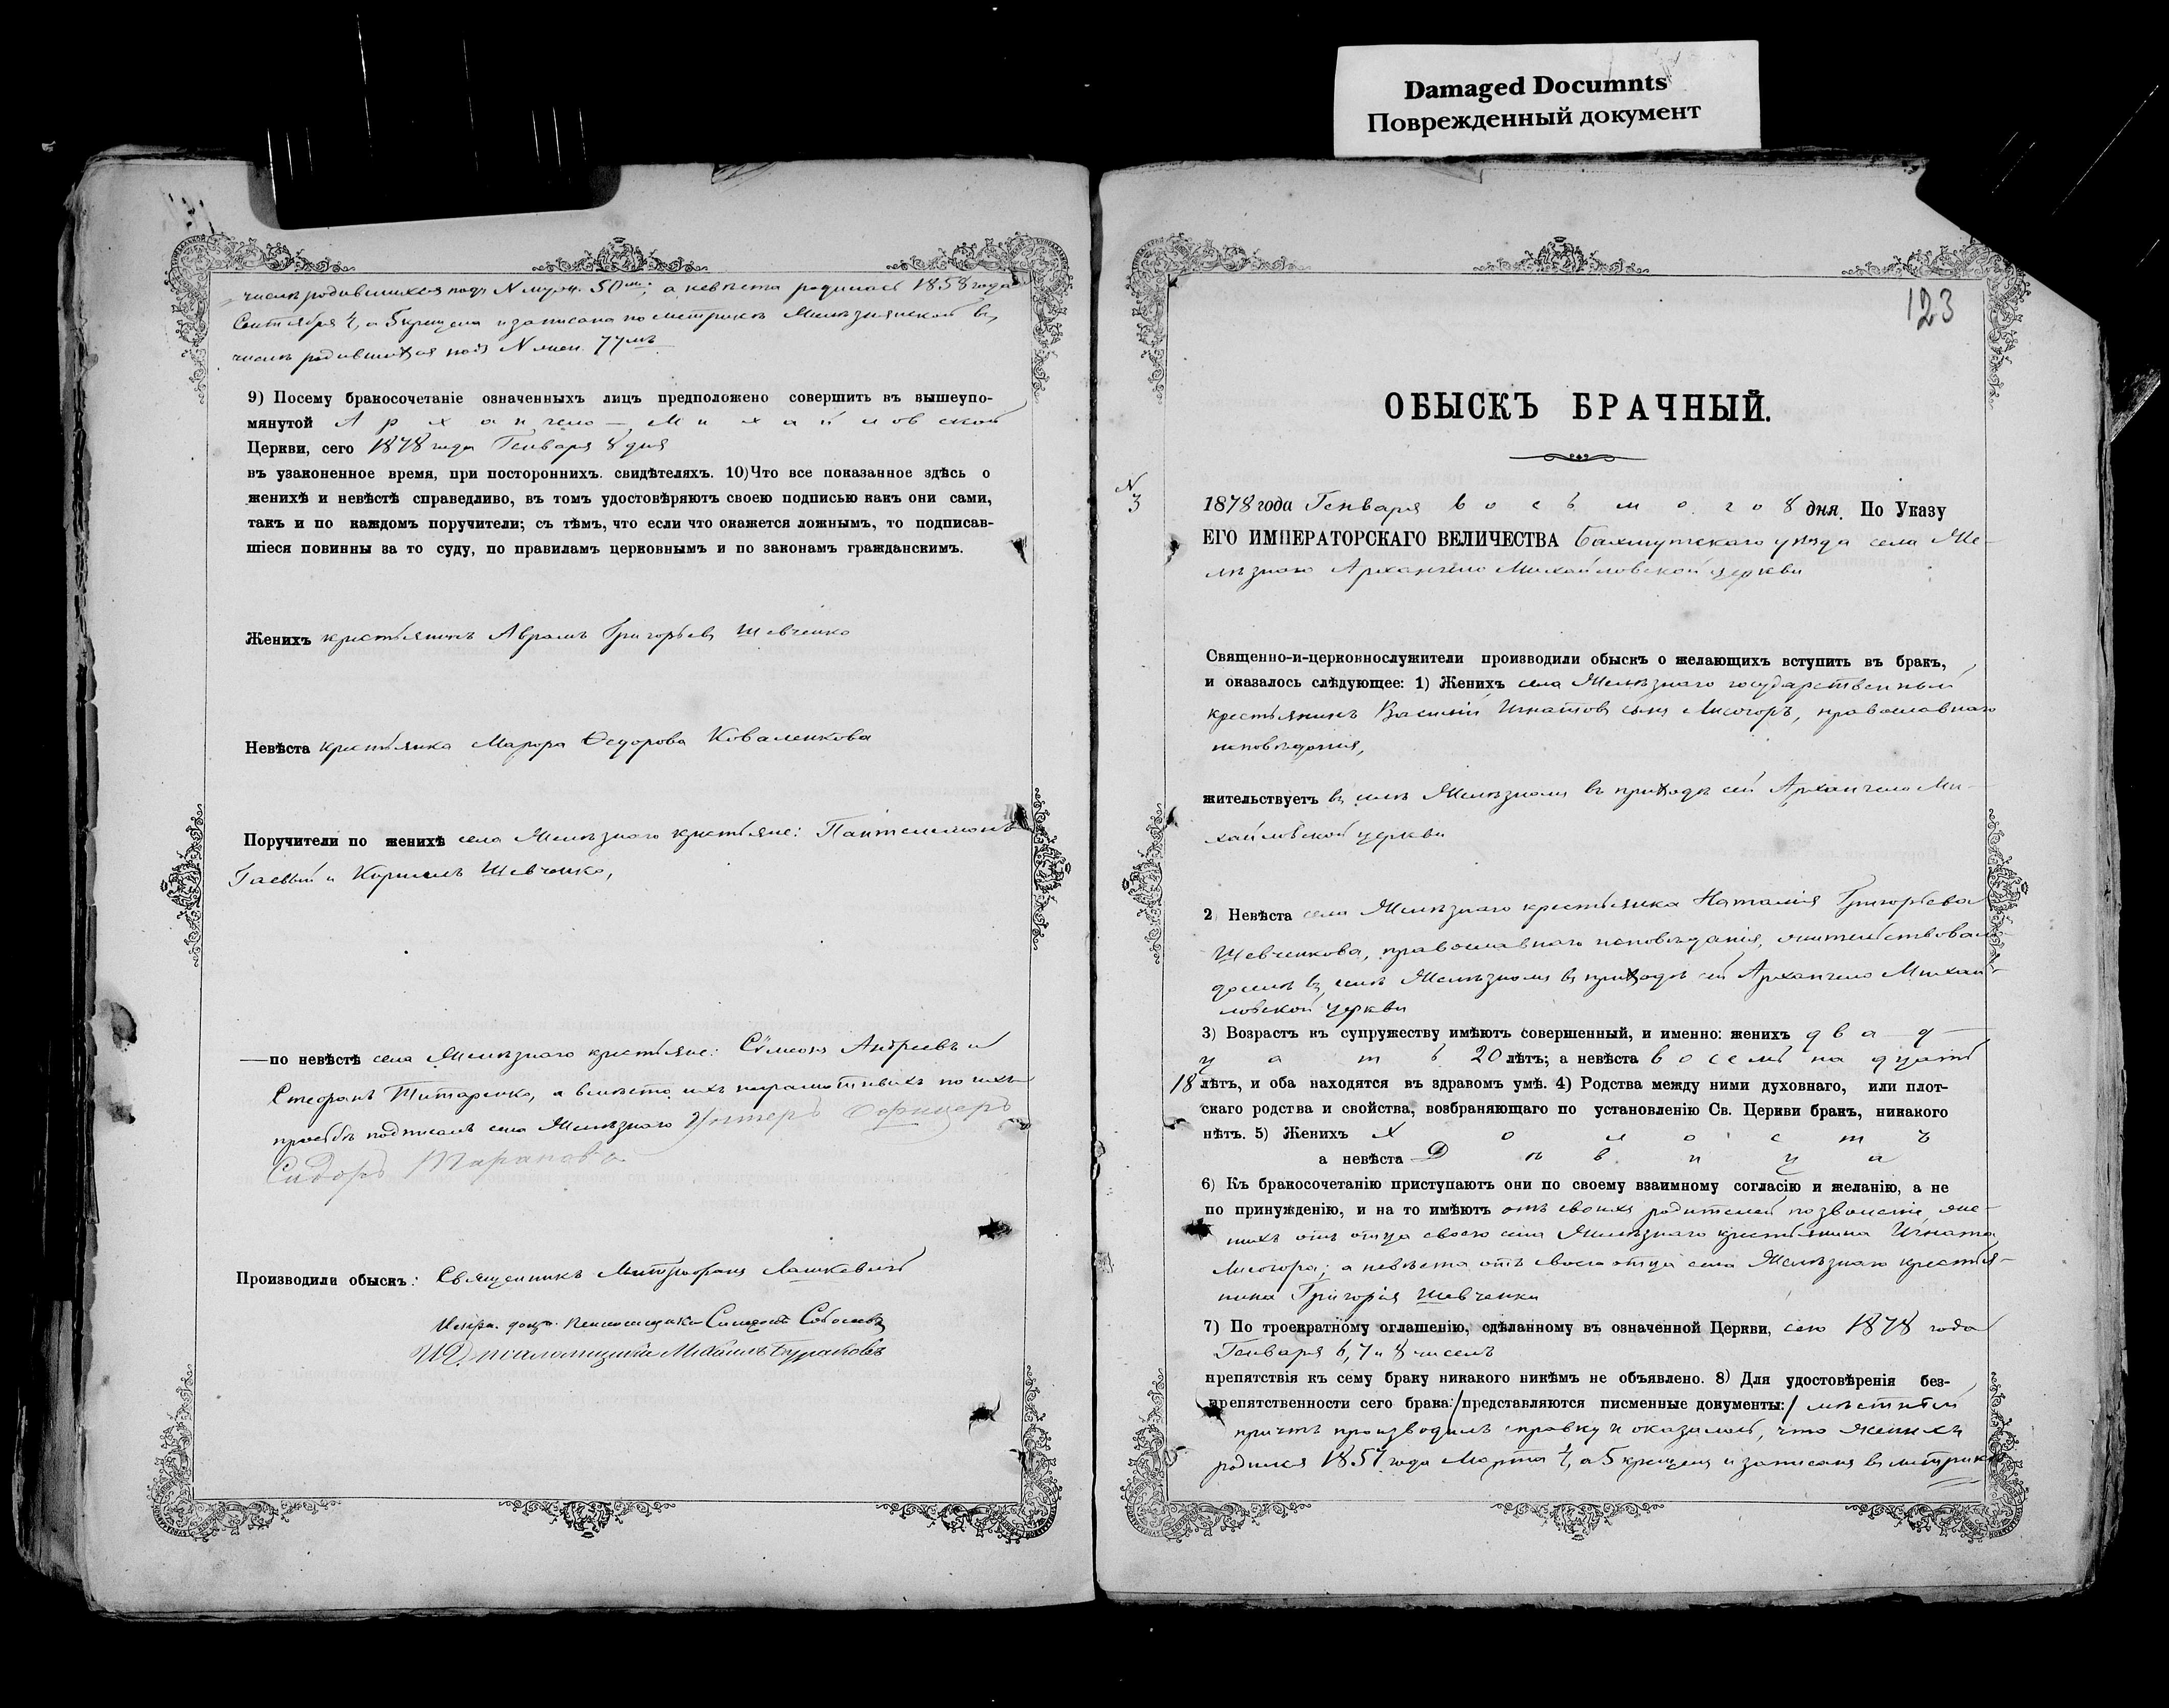 Damaged Documnts
Поврежденный документ
числѣ родившихся подъ № муж. 50мъ; а невѣста родилась 1858 года
Сентября 4, а 5 крещена и записана по метрикѣ Желѣзнянской въ
числѣ родившихся подъ № жен. 77мъ
9) Посему бракосочетаніе означенныхъ лицъ предположено совершить въ вышеупо-
мянутой Архангело-Михайловской
Церкви, сего 1878 года Генваря 8 дня
въ узаконенное время, при постороннихъ. свидѣтеляхъ. 10) Что все показанное здѣсь о
женихѣ и невѣстѣ справедливо, въ томъ удостовѣряютъ своею подписью какъ они сами,
такъ и по каждомъ поручители; съ тѣмъ, что если что окажется ложнымъ, то подписав-
шіеся повинны за то суду, по правиламъ церковнымъ и по законамъ гражданскимъ.
Женихъ крестьянинъ Аврамъ Григорьевъ Шевченко
Невѣста крестьянка Марфа Ѳедорова Коваленкова
Поручители по женихѣ села Желѣзнаго крестьяне: Пантелеимонъ
Гаевый и Кириллъ Шевченко,
—по невѣстѣ села Желѣзнаго крестьяне: Сѵмеонъ Андреевъ и
Стефанъ Титаренко, а вмѣсто ихъ неграмотныхъ по ихъ
просьбѣ подписалъ села Желѣзнаго Унтеръ Офицеръ
Сидоръ Тарановъ
Производили обыскъ: Священникъ Митрофанъ Лашкевичъ
И. Д. псаломщика Михаилъ Бураковъ
123
ОБЫСКЪ БРАЧНЫЙ.
№
3
1878 года Генваря восьмого 8 дня. По Указу
ЕГО ИМПЕРАТОРСКАГО ВЕЛИЧЕСТВА Бахмутскаго уѣзда села Же-
лѣзнаго Архангело Михайловской церкви
Священно-и-церковнослужители производили обыскъ о желающихъ вступить въ бракъ,
и оказалось слѣдующее: 1) Женихъ села Желѣзнаго государственный
крестьянинъ Василій Игнатовъ сынъ Лисогоръ, православнаго
исповѣданія,
жительствуетъ въ селѣ Желѣзномъ въ приходѣ сей Архангело Ми-
хайловской церкви
2) Невѣста села Желѣзнаго крестьянка Наталія Григорьева
Шевченкова, православнаго исповѣданія, жительствовала
доселѣ въ селѣ Желѣзномъ въ приходѣ сей Архангело Михай-
ловской церкви
3) Возрастъ къ супружеству имѣютъ совершенный, и именно: женихъ двад-
цать 20 лѣтъ; а невѣста восемнадцать
18 лѣтъ, и оба находятся въ здравомъ умѣ. 4) Родства между ними духовнаго, или плот-
скаго родства и свойства, возбраняющаго по установленію Св. Церкви бракъ, никакого
нѣтъ. 5) Женихъ Холостъ
а невѣста Дѣвица
6) Къ бракосочетанію приступаютъ они по своему взаимному согласію и желанію, а не
по принужденію, и на то имѣютъ отъ своихъ родителей позволеніе же-
нихъ отъ отца своего села Желѣзнаго крестьянина Игната
Лисогора; а невѣста отъ своего отца села Желѣзнаго крестья-
нина Григорія Шевченки
7) По троекратному оглашенію, сдѣланному въ означенной Церкви, сего 1878 года
Генваря 6, 7 и 8 чиселъ
препятствія къ сему браку никакого никѣмъ не объявлено. 8) Для удостовѣренія без-
препятственности сего брака: /представляются писменные документы:/ мѣстный
причтъ производилъ справку и оказалось, что женихъ
родился 1857 года Марта 4, а 5 крещенъ и записанъ въ метрикѣ